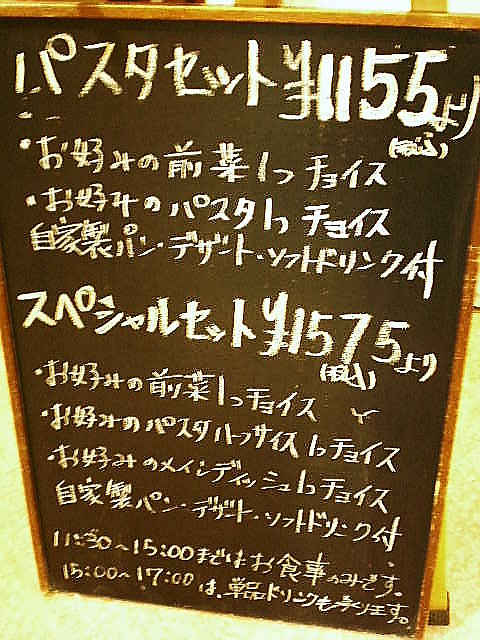 パスタセット ¥1155より
(税込)
・お好みの前菜1つチョイス
・お好みのパスタ1つチョイス
自家製パン・デザート・ソフトドリンク付
スペシャルセット ¥1575より
(税込)
・お好みの前菜1つチョイス
・お好みのパスタハーフサイズ1つチョイス
・お好みのメインディッシュ1つチョイス
自家製パン・デザート・ソフトドリンク付
11:30〜15:00まではお食事のみです。
15:00〜17:00は、単品ドリンクも承ります。